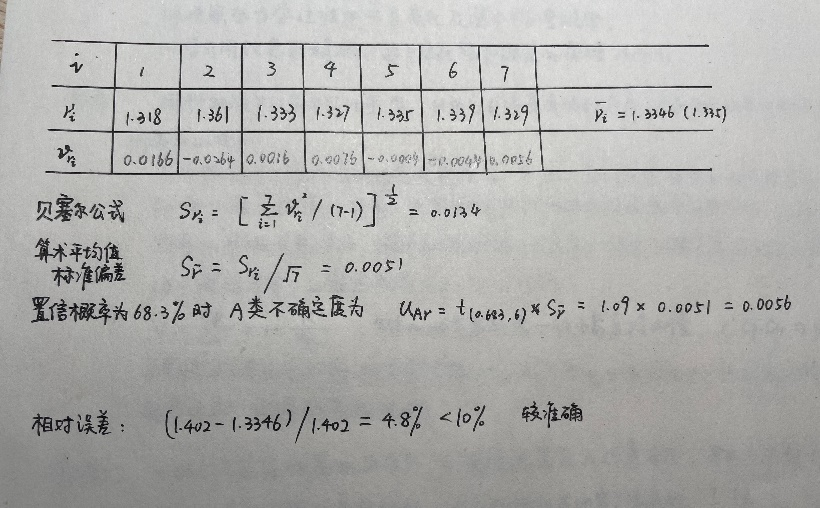 i 1 2 3 4 5 6 7
γᵢ 1.318 1.361 1.333 1.327 1.335 1.339 1.329 γ̄ᵢ = 1.3346 (1.335)
𝜗γᵢ 0.0166 -0.0264 0.0016 0.0076 -0.0004 -0.0044 0.0056
贝塞尔公式 Sγᵢ = [ Σ(i=1, 7) 𝜗γᵢ² / (7-1) ]^(1/2) = 0.0134
算术平均值
标准偏差 Sγ̄ = Sγᵢ / √7 = 0.0051
置信概率为68.3%时 A类不确定度为 UAγ = t(0.683, 6) * Sγ̄ = 1.09 × 0.0051 = 0.0056
相对误差: (1.402 - 1.3346) / 1.402 = 4.8% < 10% 较准确